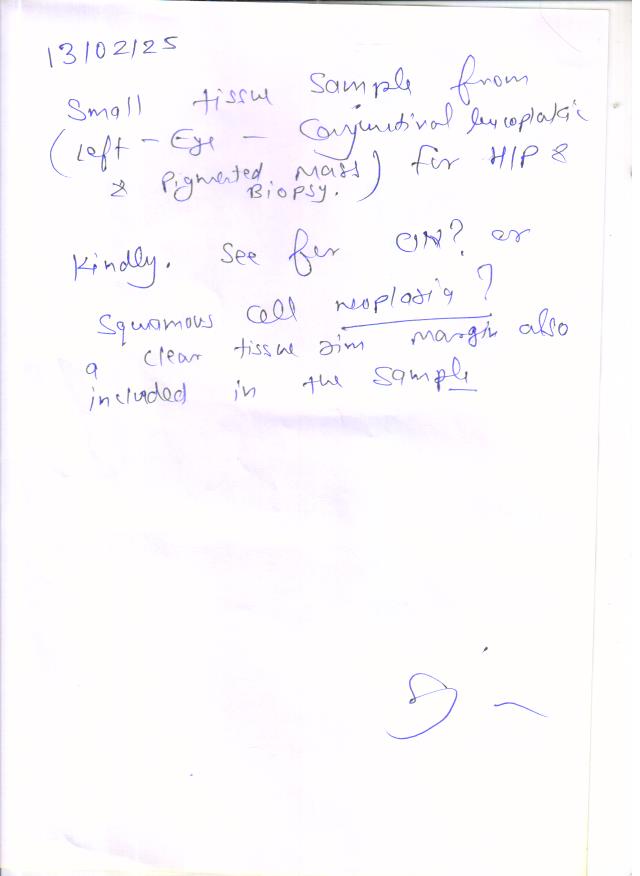 13/02/25
Small tissue Sample from
(Left - Eye - Conjunctival leucoplakic
& Pigmented Mass) for H/P &
Biopsy.
Kindly. See for CIN? or
Squamous cell neoplasia?
a clear tissue margin also
included in the sample